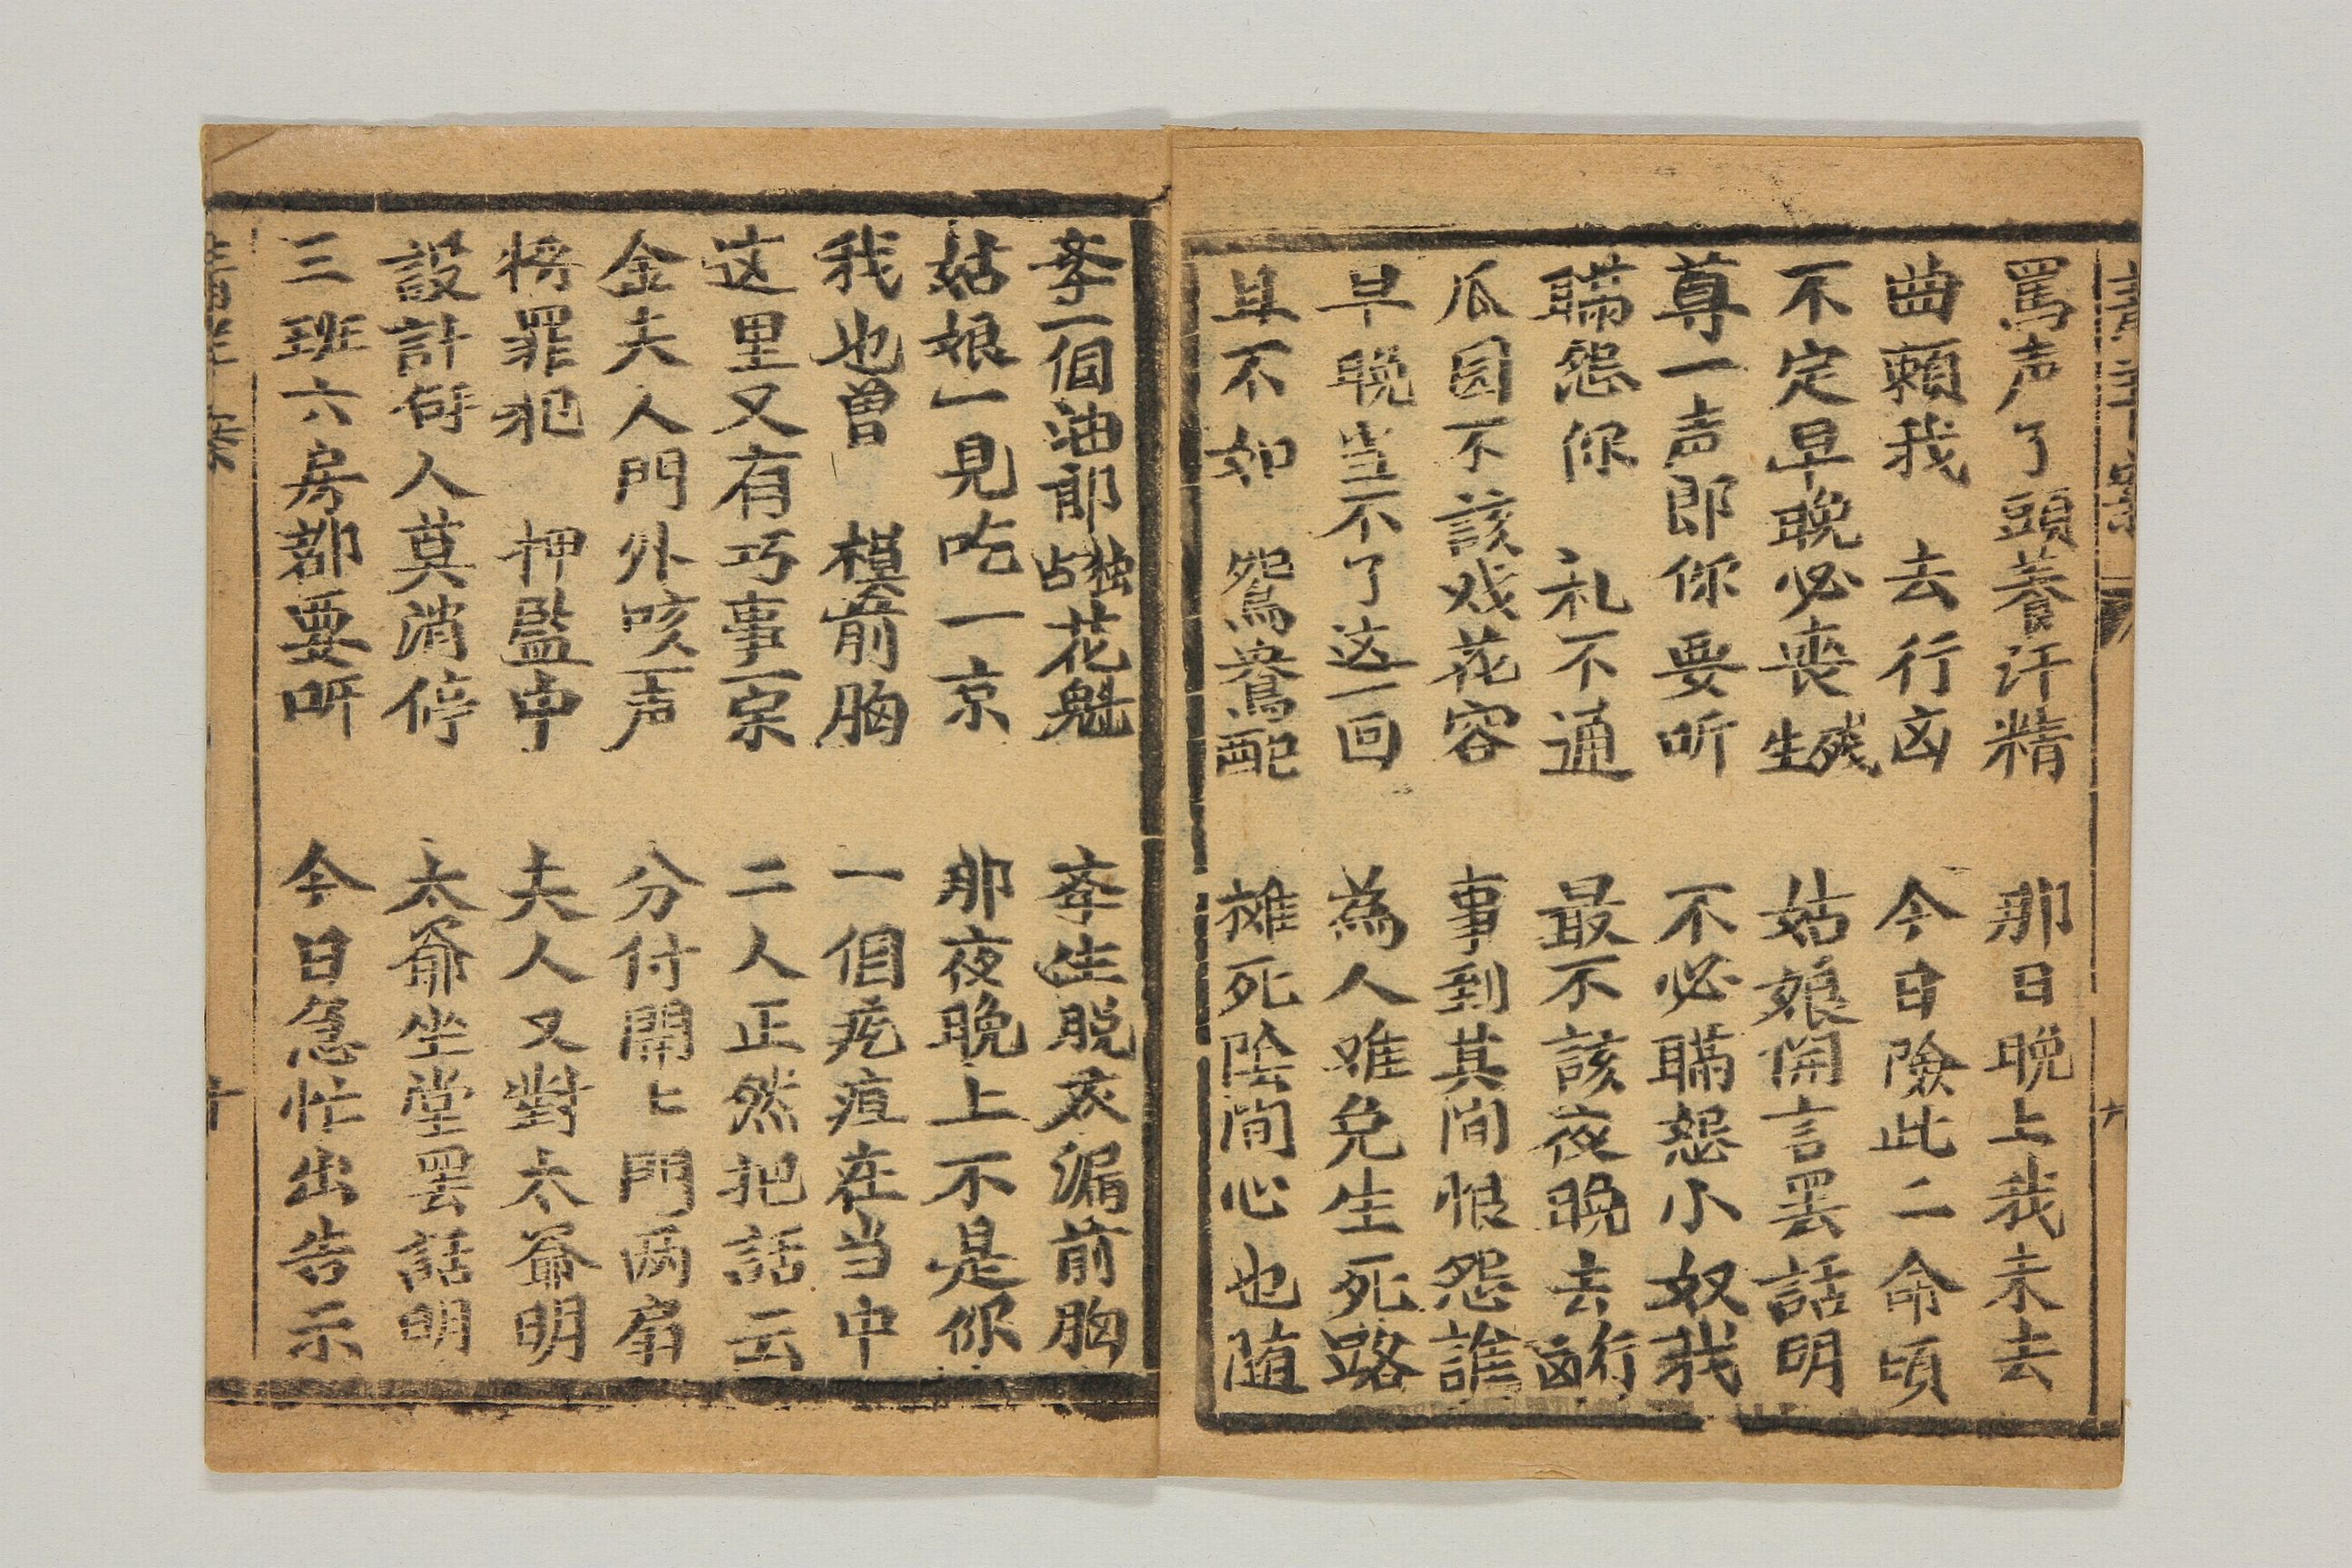 罵声了頭養汗精　那日晚上我未去
曲賴我　去行凶　今日險此二命頃
不定早晚必喪残生　姑娘開言罢話明
尊一声郎你要听　不必瞞怨小奴我
瞞怨你　礼不通　最不該夜晚去行凶
瓜园不該戏花容　事到其间恨怨誰
早晚岂不了这一回　為人难免生死路
且不如　鴛鴦配　摊死陰间心也随
李一個油郎独占花魁　李生脱衣漏前胸
姑娘一見吃一京　那夜晚上不是你
我也曾　摸前胸　一個疙疸在当中
这里又有巧事一宗　二人正然把話云
金夫人門外咳一声　分付開上門两扇
将罪犯　押監中　夫人又對太爺明
設計every人莫消停　太爺坐堂罢話明
三班六房都要听　今日急忙出告示